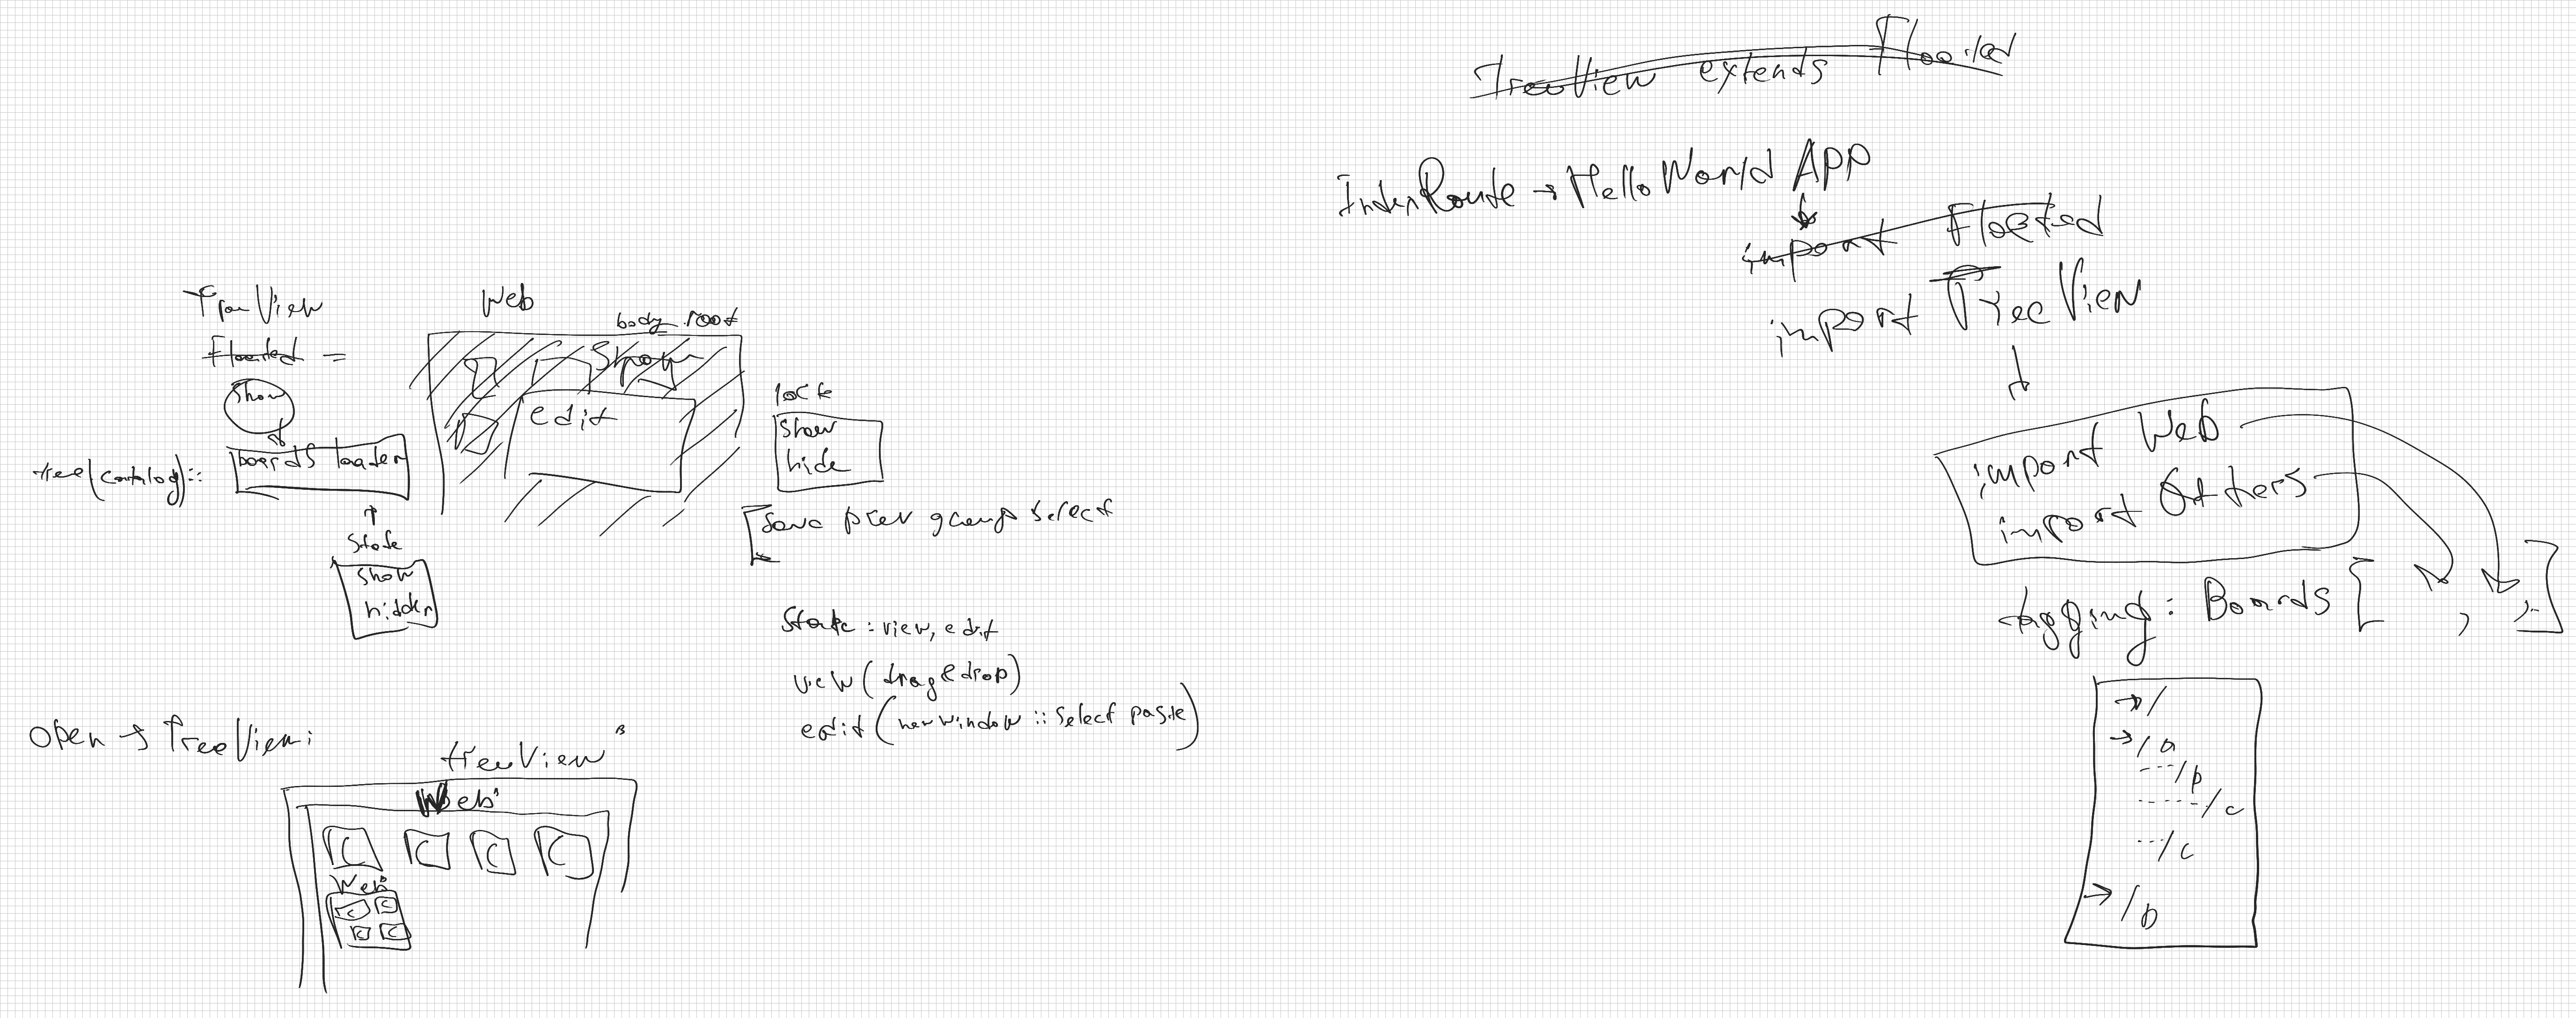 TreeView
Floated =
show
tree(catalog)::
boards loader
state
show
hidden
Web
body.root
show
edit
lock
show
hide
save prev group select
state: view, edit
view (drag&drop)
edit (newwindow :: select paste)
Open → TreeView:
treeView
Web
C C C C
Web
C C
C C
TreeView extends Floated
IndexRoute → HelloWorld App
import Floated
import TreeView
import Web
import Others
tagging: Boards [ , , ]
→ /
→ / a
---/b
------/c
---/c
→ /b